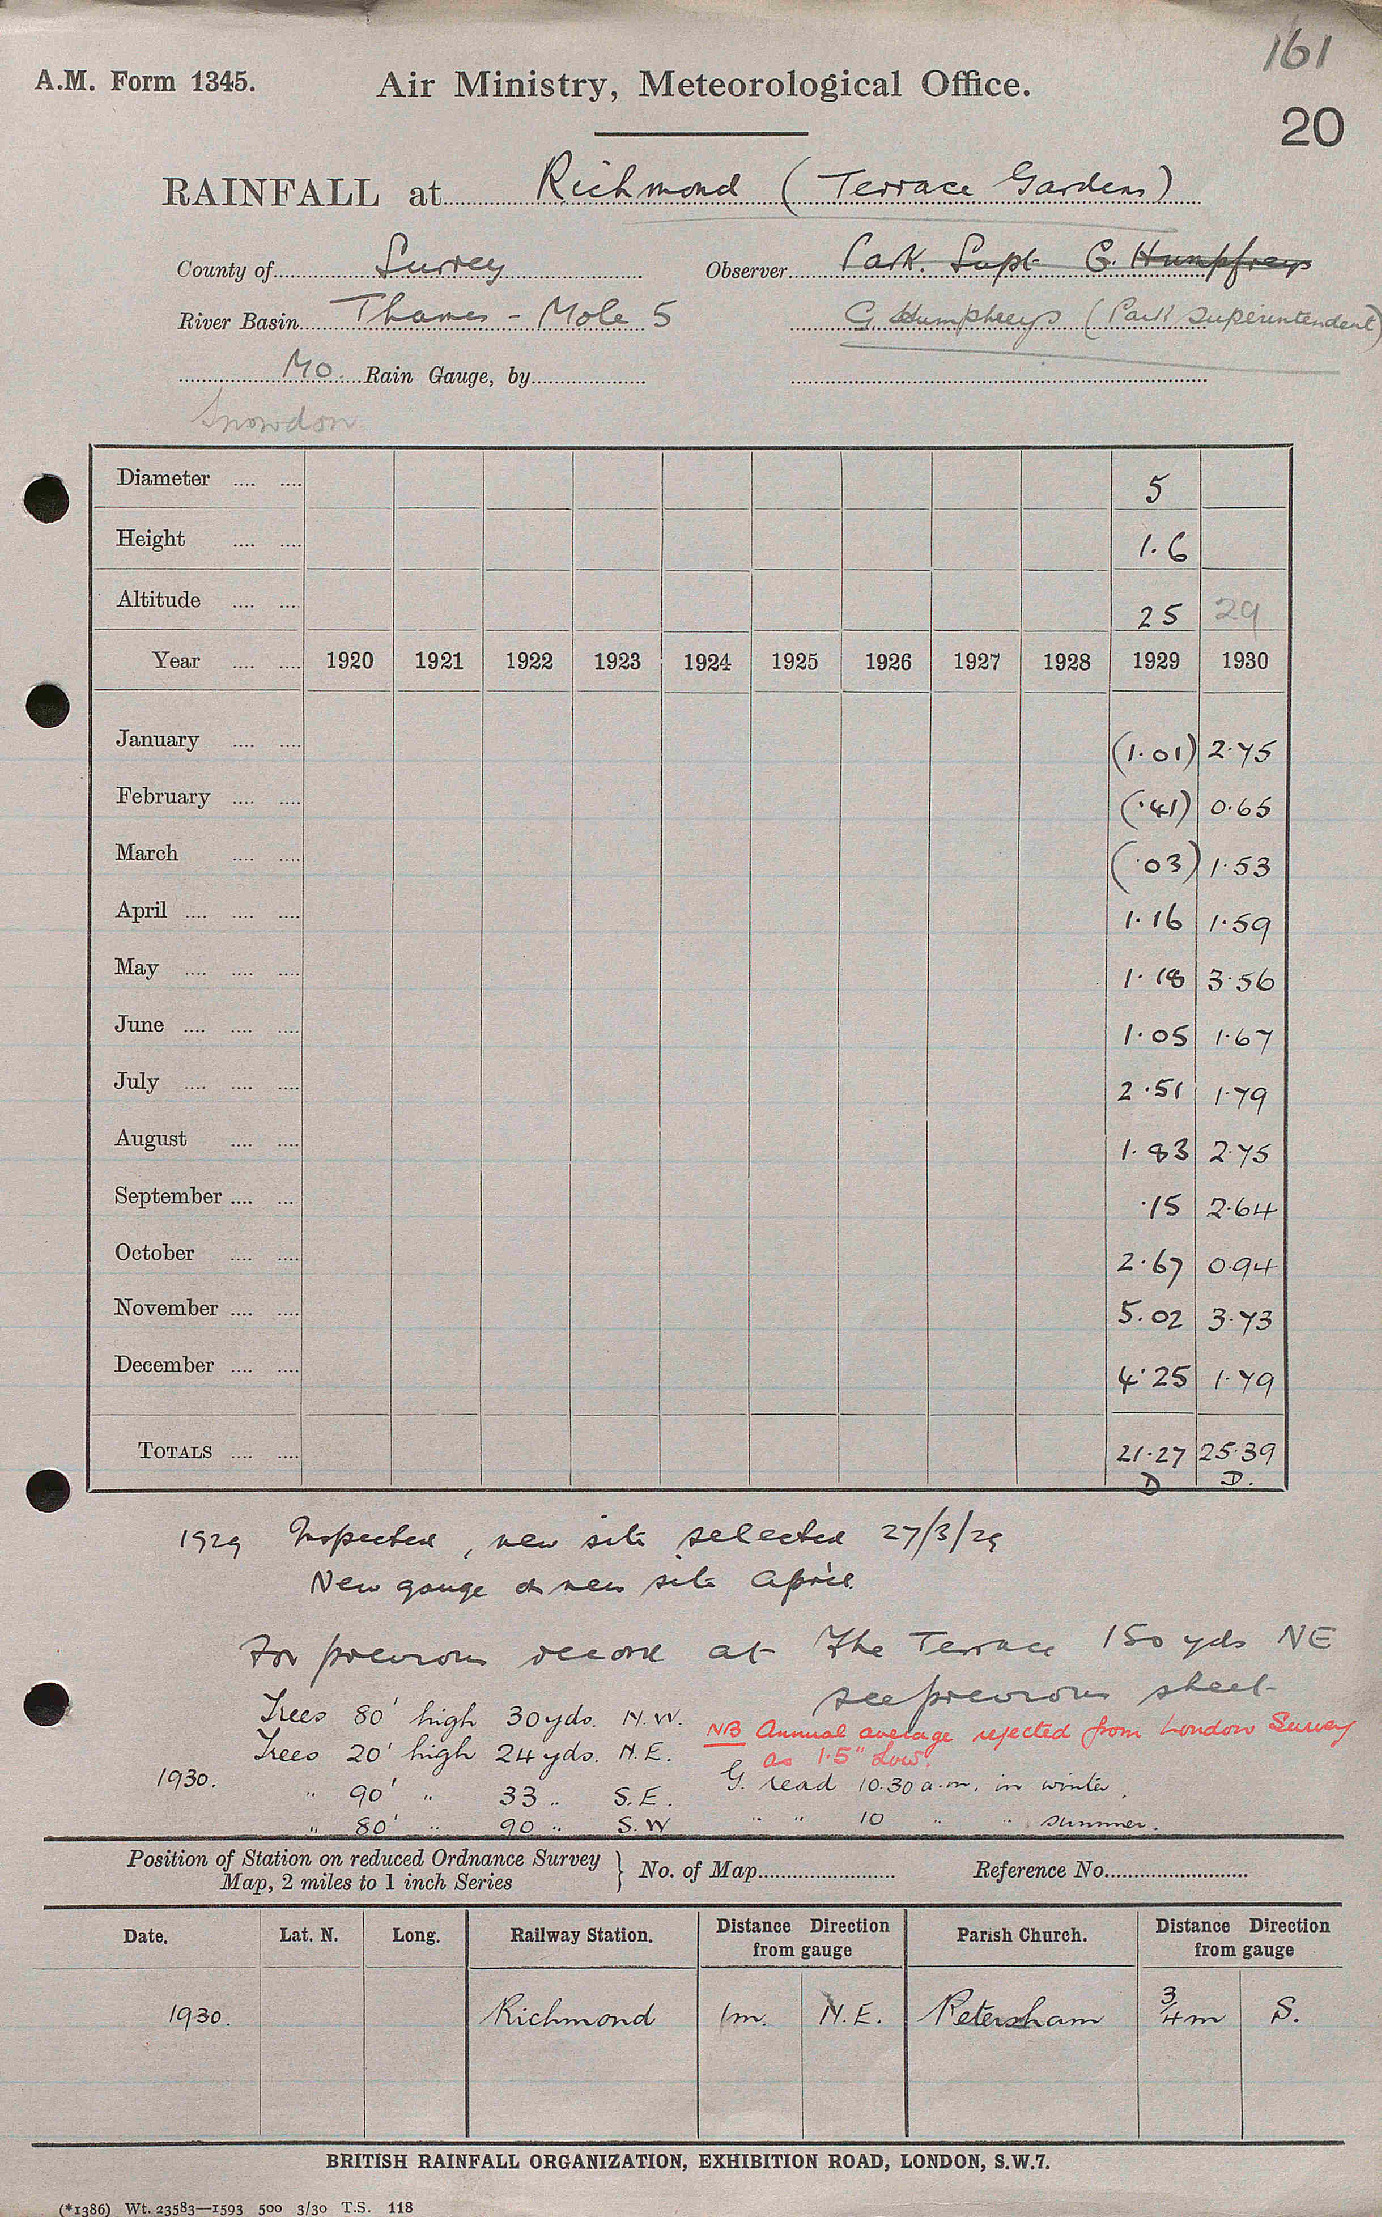 161
A.M. Form 1345. Air Ministry, Meteorological Office.
20
RAINFALL at Richmond (Terrace Gardens)
County of Surrey Observer Park Supt G. Humpfreys
River Basin Thames - Mole 5 G. Humphreys (Park Superintendent)
MO. Rain Gauge, by
Snowdon
Diameter .... .... 5
Height .... .... 1.6
Altitude .... .... 25 29
Year .... .... 1920 1921 1922 1923 1924 1925 1926 1927 1928 1929 1930
January .... .... (1.01) 2.75
February .... .... (.41) 0.65
March .... .... (.03) 1.53
April .... .... .... 1.16 1.59
May .... .... .... 1.18 3.56
June .... .... .... 1.05 1.67
July .... .... .... 2.51 1.79
August .... .... 1.83 2.75
September .... .... .15 2.64
October .... .... 2.67 0.94
November .... .... 5.02 3.73
December .... .... 4.25 1.79
TOTALS .... .... 21.27 25.39
D D.
1929 Inspected, new site selected 27/3/29
New gauge on new site April
For previous record at The Terrace 150 yds NE
see previous sheet
Trees 80' high 30 yds. N.W.
NB Annual average rejected from London Survey
as 1.5" low.
Trees 20' high 24 yds. N.E.
1930. " 90' " 33 " S.E.
G. read 10.30 a.m. in winter,
" 80' " 90 " S.W " " 10 " " summer.
Position of Station on reduced Ordnance Survey
Map, 2 miles to 1 inch Series } No. of Map Reference No.
Date. Lat. N. Long. Railway Station. Distance Direction from gauge Parish Church. Distance Direction from gauge
1930. Richmond 1m. N.E. Petersham 3/4m S.
BRITISH RAINFALL ORGANIZATION, EXHIBITION ROAD, LONDON, S.W.7.
(*1386) Wt. 23583—1593 500 3/30 T.S. 118